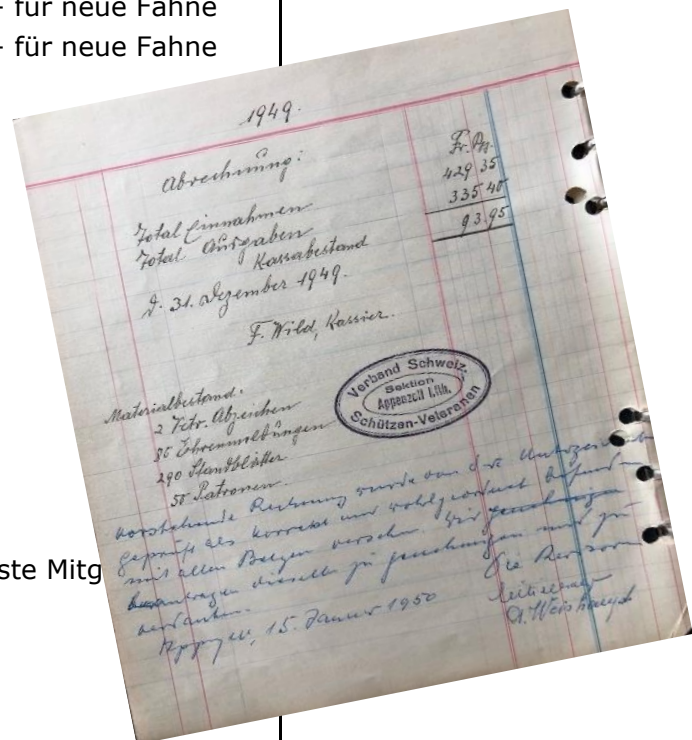 - für neue Fahne
- für neue Fahne
1949.
Abrechnung:
Fr. Rp.
Total Einnahmen 429 35
Total Ausgaben 335 40
Kassabestand 93.95
d. 31. Dezember 1949.
F. Wild, Kassier.
Verband Schweiz.
Sektion
Appenzell I.Rh.
Schützen-Veteranen
Materialbestand.
2 Vetr. Abzeichen
85 Ehrenmeldungen
290 Standblätter
55 Patronen
Vorstehende Rechnung wurde von den Unterzeichneten
geprüft als korrekt und wohlgeordnet befunden
mit allen Belegen versehen. Wir
beantragen dieselbe zu genehmigen und zu
verdanken. Die Revisoren
Appzell, 15. Januar 1950
A. Weishaupt
ste Mitg